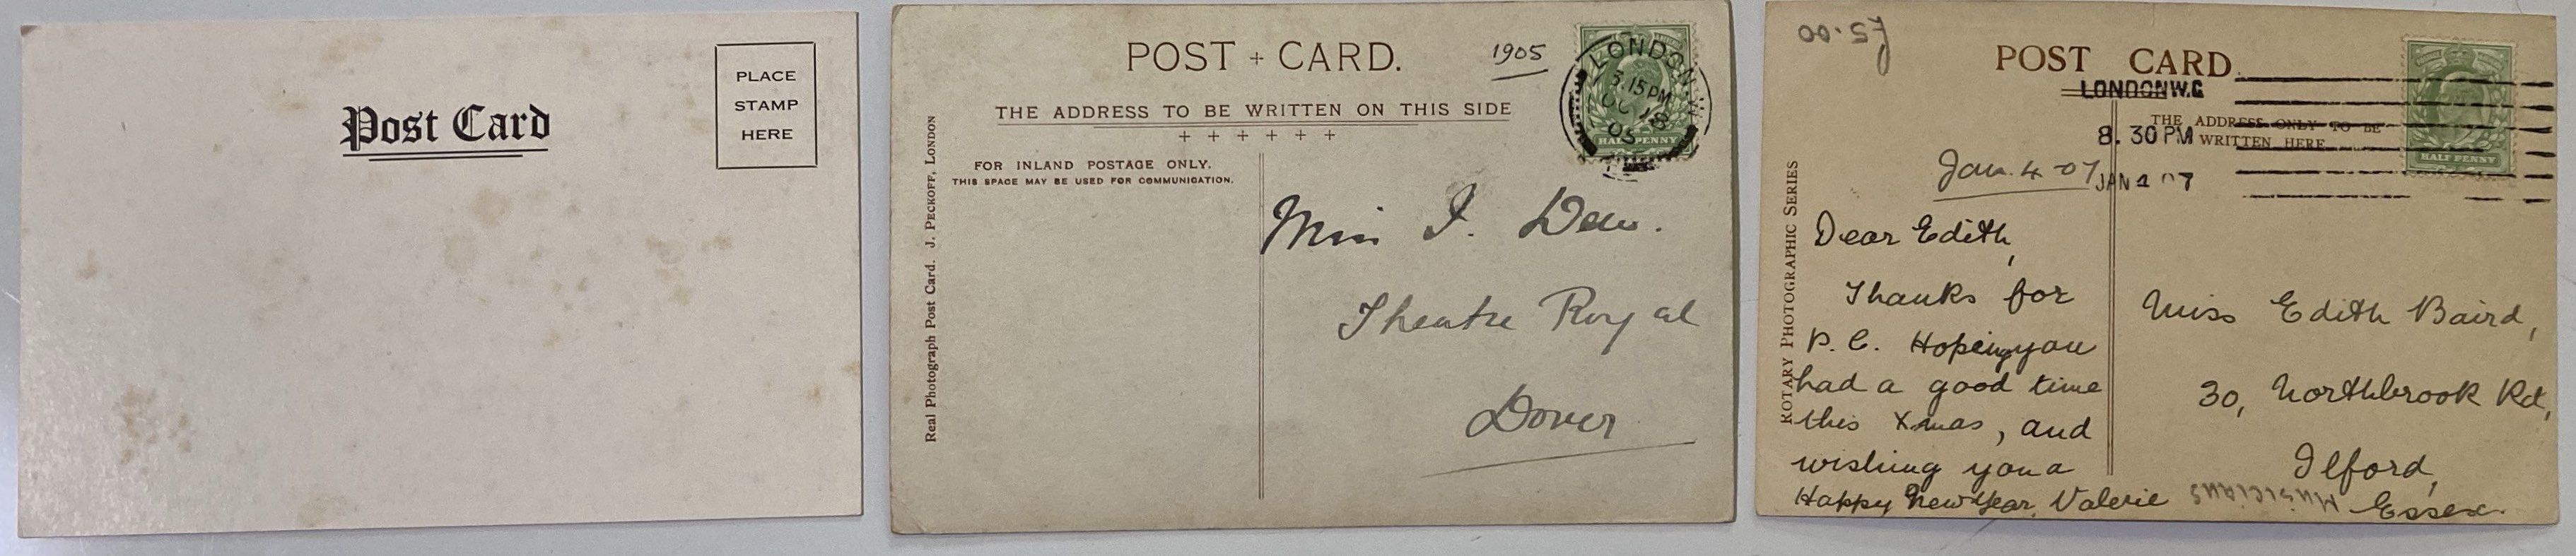 Post Card
PLACE
STAMP
HERE
POST + CARD.
1905
THE ADDRESS TO BE WRITTEN ON THIS SIDE
+ + + + + +
FOR INLAND POSTAGE ONLY.
THIS SPACE MAY BE USED FOR COMMUNICATION.
Real Photograph Post Card. J. PECKOFF, LONDON
LONDON
3.15 PM
OC 18
05
HALFPENNY
Miss I. Dew.
Theatre Royal
Dover
£5.00
POST CARD
LONDON W.C
THE ADDRESS ONLY TO BE
WRITTEN HERE
8. 30 PM
JAN 4 07
HALFPENNY
ROTARY PHOTOGRAPHIC SERIES
Jan. 4 - 07
Dear Edith,
Thanks for
P. C. Hoping you
had a good time
this Xmas, and
wishing you a
Happy New Year. Valerie
Miss Edith Baird,
30, Northbrook Rd,
Ilford,
Essex.
MUSICIANS